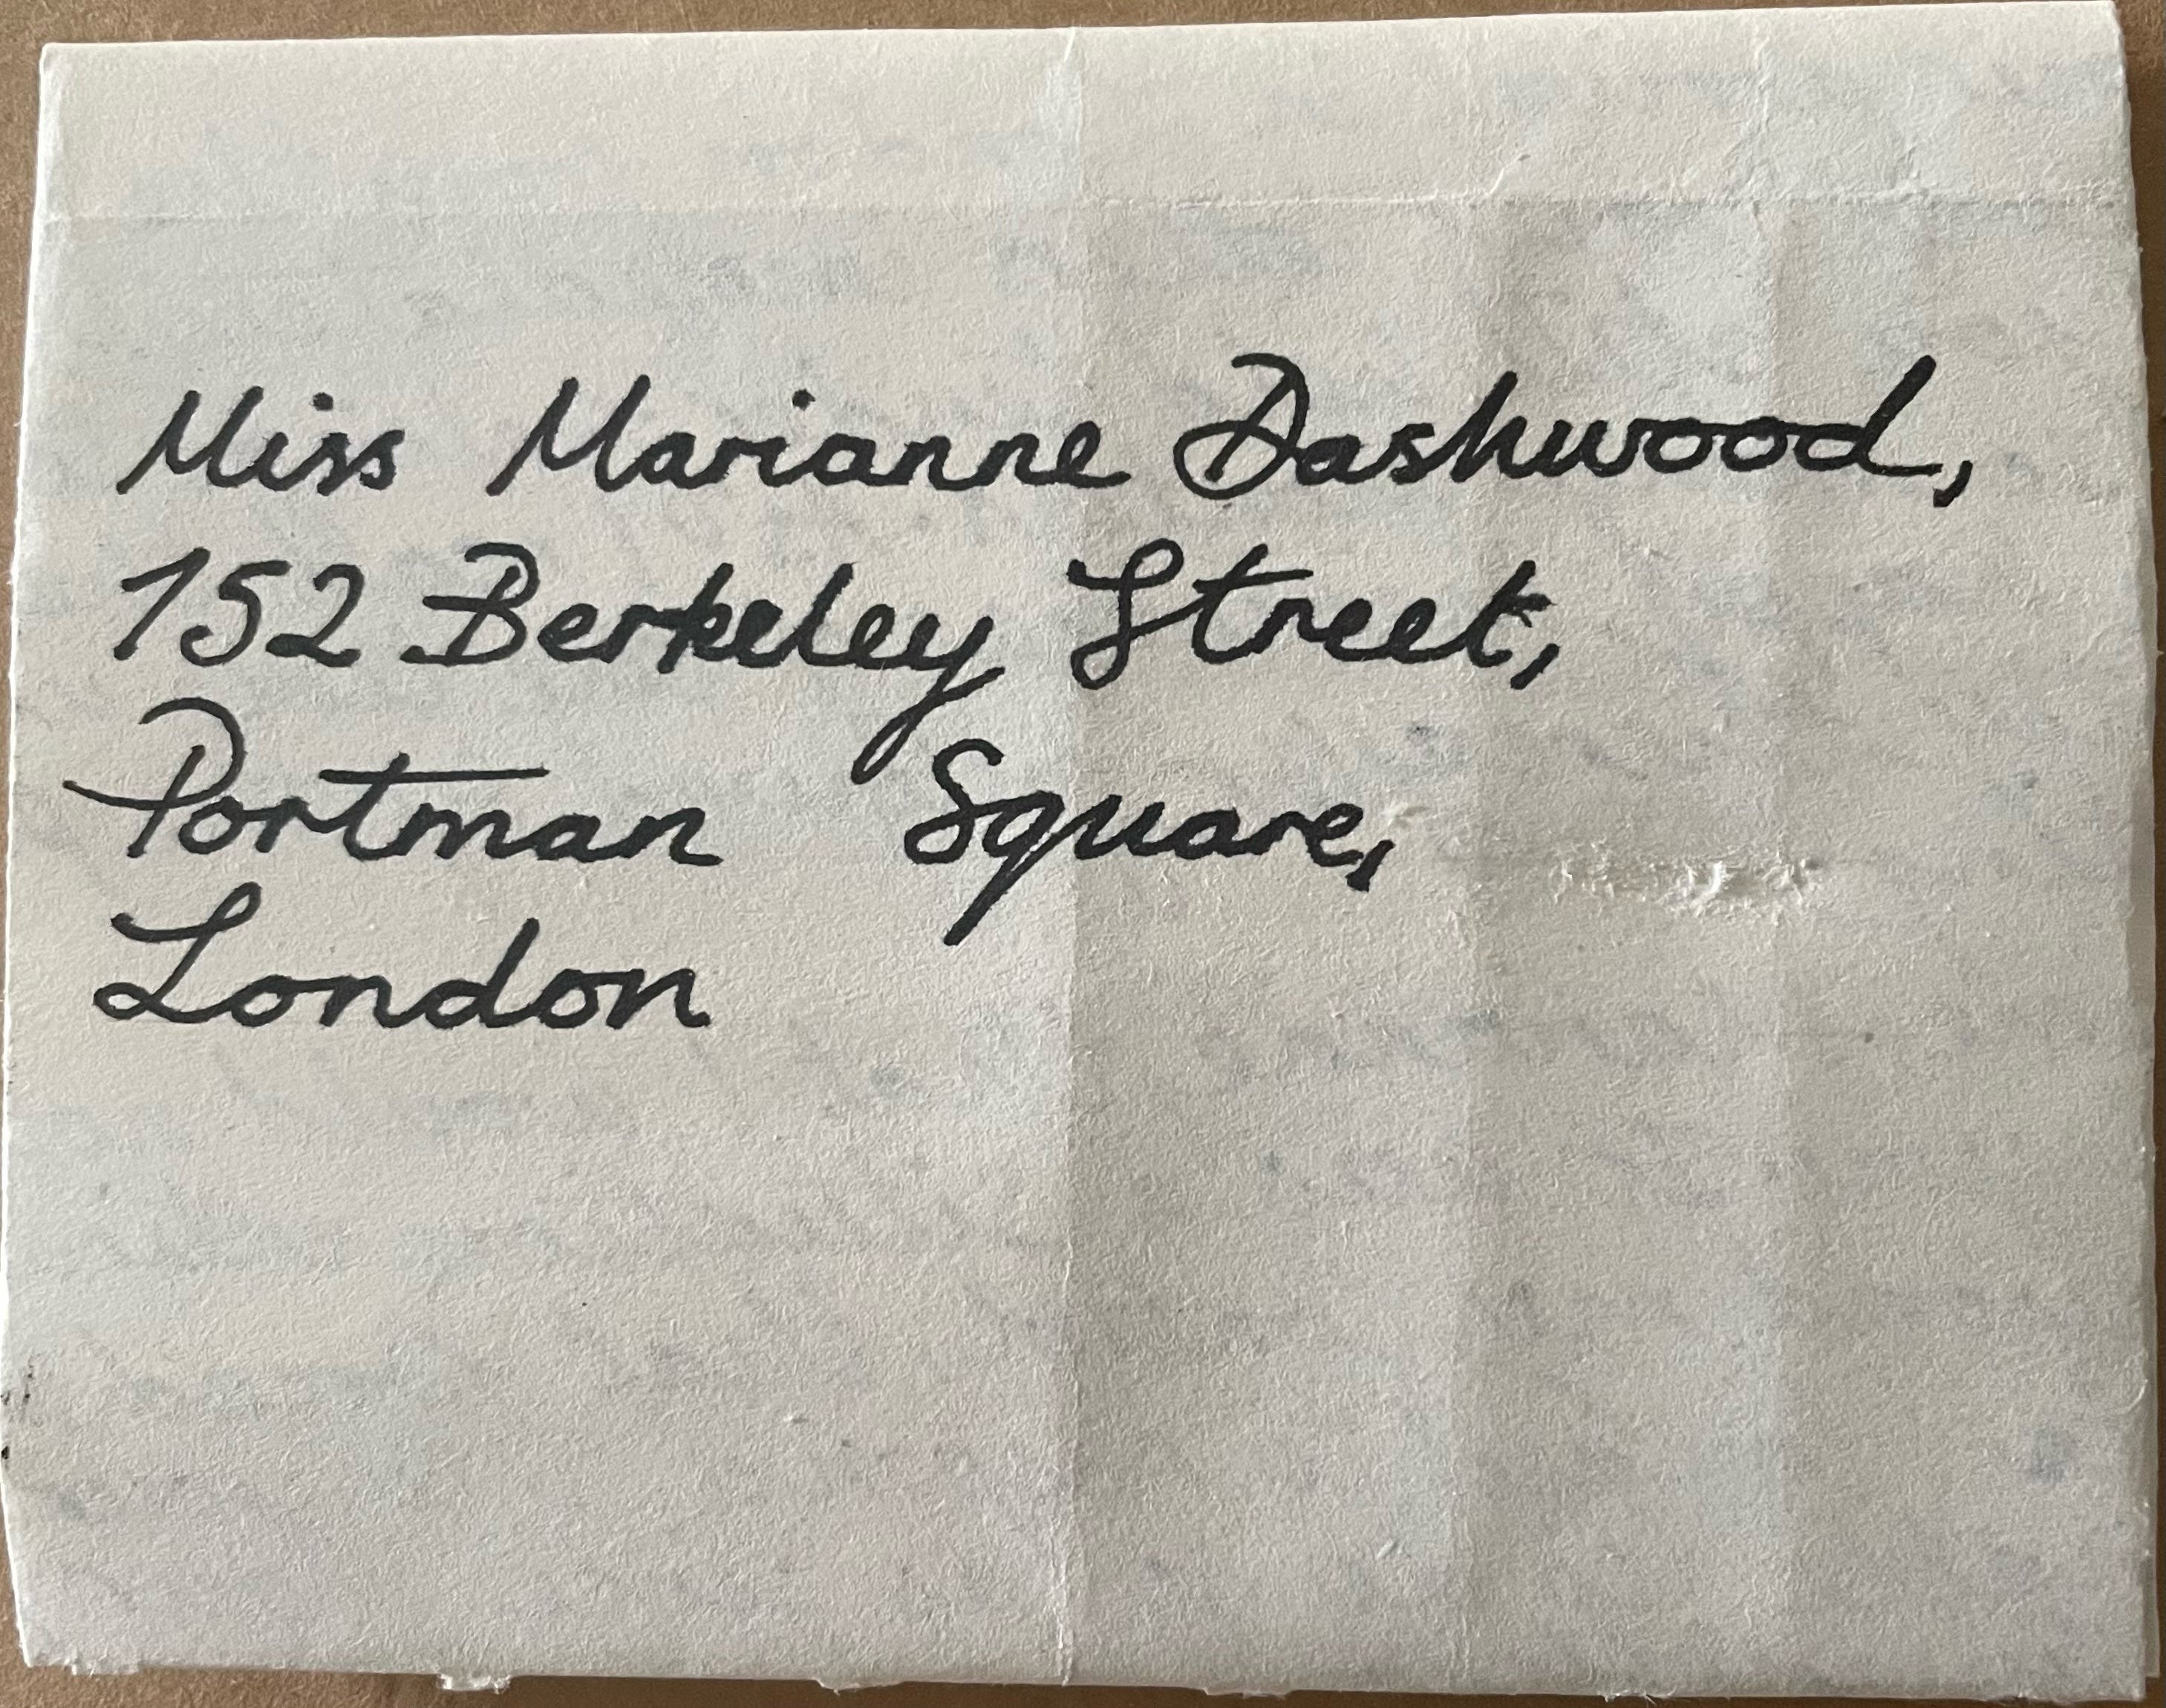 Miss Marianne Dashwood,
152 Berkeley Street,
Portman Square,
London